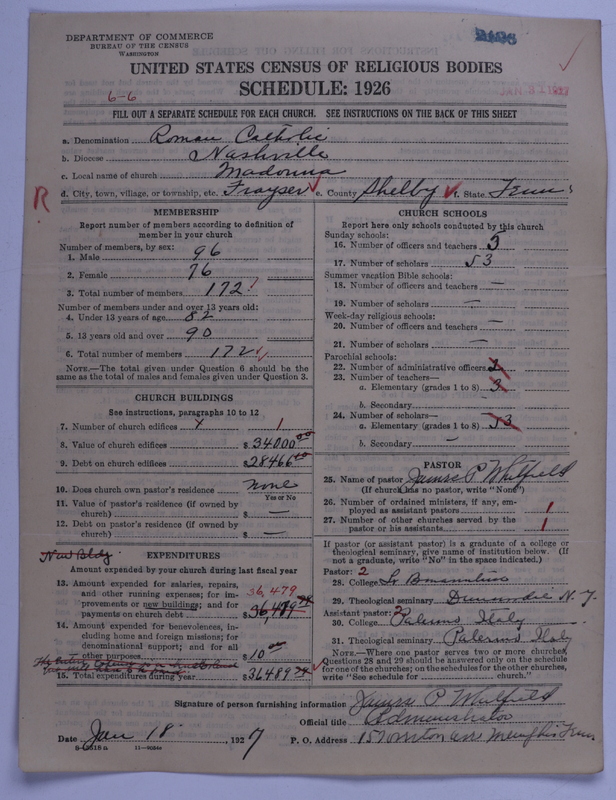 DEPARTMENT OF COMMERCE
BUREAU OF THE CENSUS
WASHINGTON
UNITED STATES CENSUS OF RELIGIOUS BODIES
SCHEDULE: 1926
6-6
FILL OUT A SEPARATE SCHEDULE FOR EACH CHURCH. SEE INSTRUCTIONS ON THE BACK OF THIS SHEET
a. Denomination Roman Catholic
b. Diocese Nashville
c. Local name of church Madonna
d. City, town, village, or township, etc. Frayser e. County Shelby f. State Tenn
R
MEMBERSHIP
Report number of members according to definition of
member in your church
Number of members, by sex:
1. Male 96
2. Female 76
3. Total number of members 172
Number of members under and over 13 years old:
4. Under 13 years of age 82
5. 13 years old and over 90
6. Total number of members 172
NOTE.—The total given under Question 6 should be the
same as the total of males and females given under Question 3.
CHURCH BUILDINGS
See instructions, paragraphs 10 to 12
7. Number of church edifices 1
8. Value of church edifices $34000.00
9. Debt on church edifices $28466
10. Does church own pastor's residence none
Yes or No
11. Value of pastor's residence (if owned by
church) $ —
12. Debt on pastor's residence (if owned by
church) $ —
New Bldg.
EXPENDITURES
Amount expended by your church during last fiscal year
13. Amount expended for salaries, repairs,
and other running expenses; for im-
provements or new buildings; and for
payments on church debt 36,479 $36,479
14. Amount expended for benevolences, in-
cluding home and foreign missions; for
denominational support; and for all
other purposes $10.00
15. Total expenditures during year $36489
CHURCH SCHOOLS
Report here only schools conducted by this church
Sunday schools:
16. Number of officers and teachers 5
17. Number of scholars 53
Summer vacation Bible schools:
18. Number of officers and teachers —
19. Number of scholars —
Week-day religious schools:
20. Number of officers and teachers —
21. Number of scholars —
Parochial schools:
22. Number of administrative officers 2
23. Number of teachers—
a. Elementary (grades 1 to 8) 3
b. Secondary
24. Number of scholars—
a. Elementary (grades 1 to 8) 53
b. Secondary —
PASTOR
25. Name of pastor James P Whitfield
(If church has no pastor, write "None")
26. Number of ordained ministers, if any, em-
ployed as assistant pastors 1
27. Number of other churches served by the
pastor or his assistants 1
If pastor (or assistant pastor) is a graduate of a college or
theological seminary, give name of institution below. (If
not a graduate, write "No" in the space indicated.)
Pastor: 2
28. College St
29. Theological seminary
Assistant pastor: 2
30. College Palermo Italy
31. Theological seminary Palermo Italy
NOTE.—Where one pastor serves two or more churches,
Questions 28 and 29 should be answered only on the schedule
for one of the churches; on the schedules for the other churches,
write "See schedule for church."
Signature of person furnishing information James P Whitfield
Official title Administrator
Date Jan 18, 1927 P. O. Address Memphis Tenn
11—9052